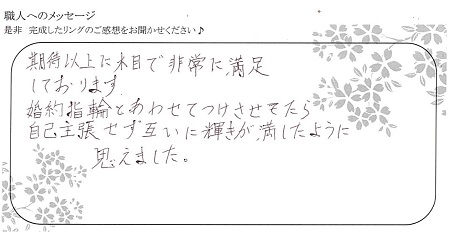 職人へのメッセージ
是非 完成したリングのご感想をお聞かせください♪
期待以上に木目で非常に満足
しております
婚約指輪とあわせてつけさせてたら
自己主張せず互いに輝きが満したように
思えました。